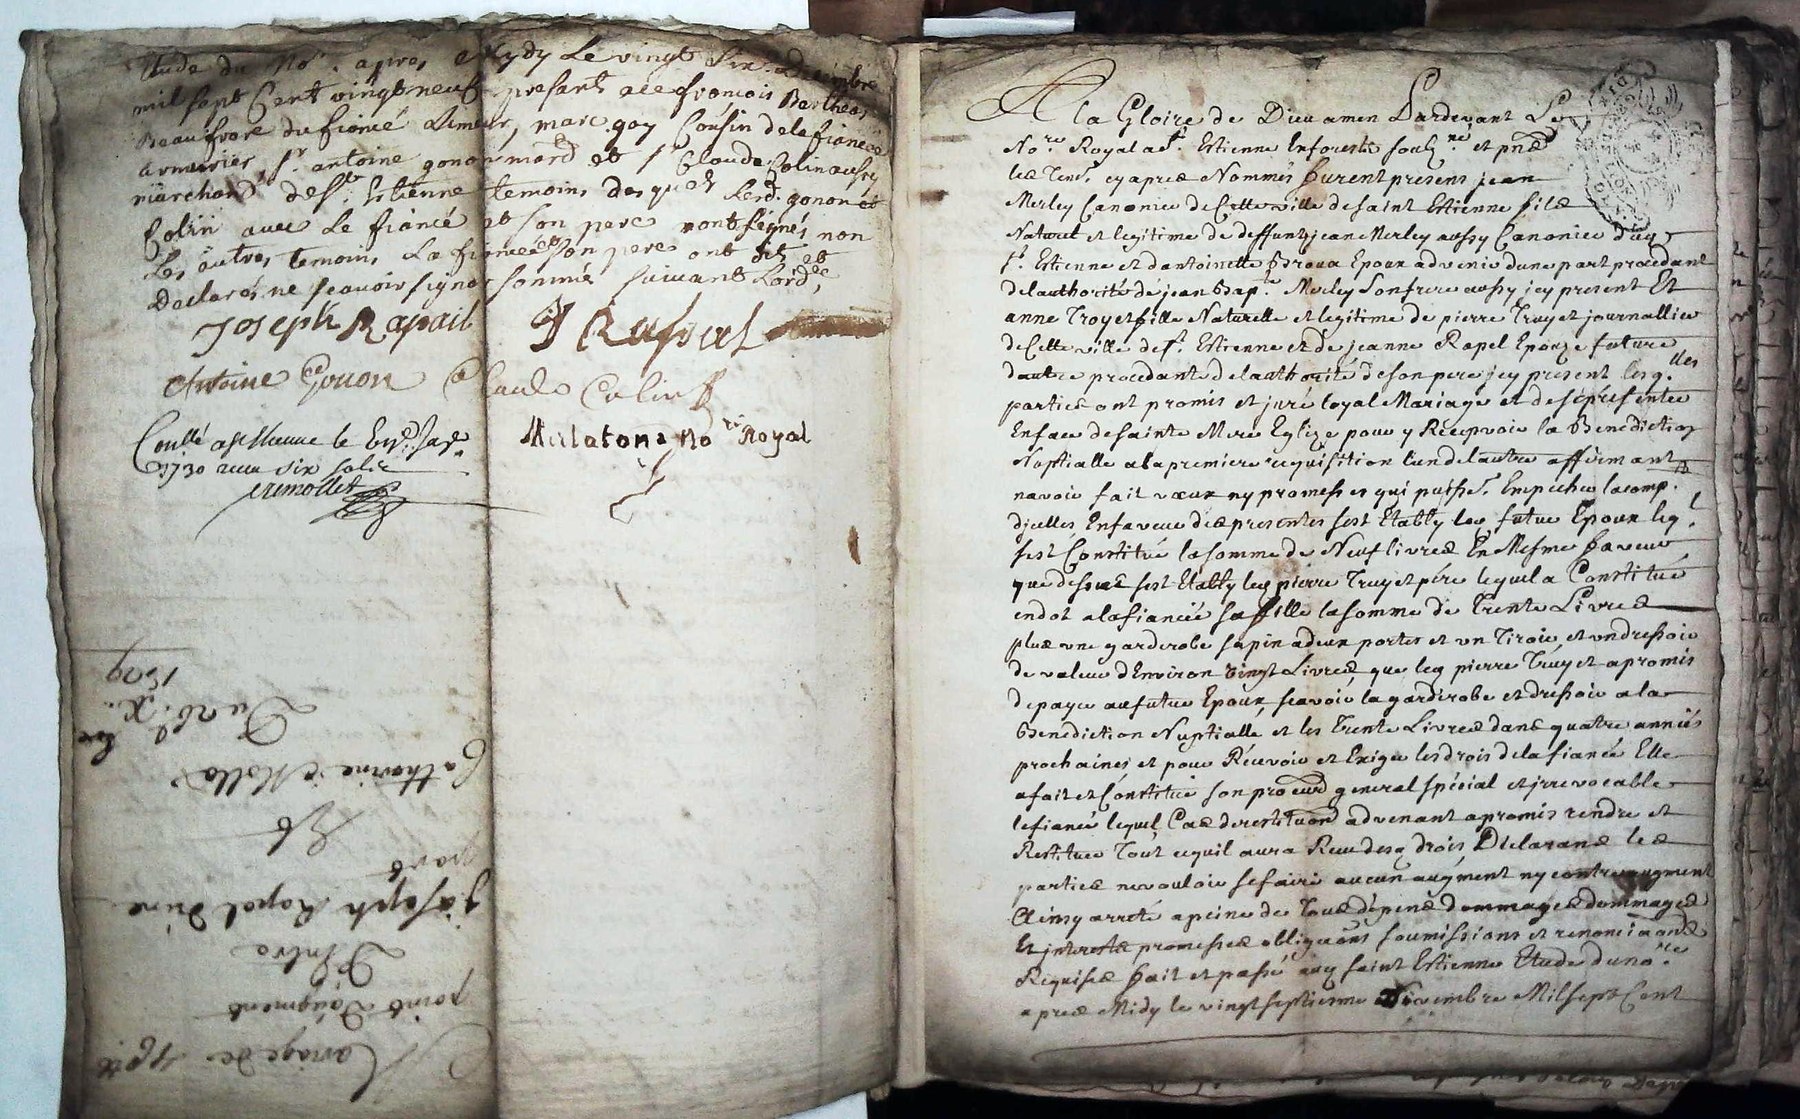 Etude du No.re apres Mydy Le vingt six decembre
mil sept Cent vingt neuf presants francois
Beaufrere du fiancé Limeur, marc gay Cousin dela fiancée
armurier, Sr. antoine gonon mard et Sr Claude Colin aussy
marchand de St. Estienne temoins desquels Lesd. gonon et
Colin avec Le fiancé et son pere ont signés non
Les autres temoins La fiancée et son pere ont dit et
Declarés ne scavoir signer sommé suivant Lord.ce
Joseph Rapail J Rapail
Antoine Gonon Claude Colin
Mulaton No.re Royal
Conllé a St Etienne le
1730 receu six solz
Mariage de
point d'augment
Entre
Joseph Rapel dune
part
Et
Catherine Mollo
Du 26. X.bre
1729
A la Gloire de Dieu amen Pardevant Le
No.re Royal a St. Estienne En forests souz.né et pnts
les Tem. cy apres Nommés furent presens jean
Merley Canonier de Cette ville de saint Estienne fils
Naturel et legitime de deffunt jean Merley aussy Canonier dud
St. Estienne et dantoinette Époux advenir dune part procedant
de lauthorité de jean Bap.te Merley son frere aussy jcy present Et
anne Truyet fille Naturelle et legitime de pierre Truyet journallier
de Cette ville de St. Estienne et de jeanne Rapel Epouze future
dautre procedante de lauthorité de son pere jcy present lesq.lles
parties ont promis et juré loyal Mariage et de se présenter
En face de sainte Mere Eglize pour y Recepvoir la Benediction
Nuptialle a la premiere requisition lun de lautre affirmant
navoir fait vœux ny promesses qui puisse. Empecher laccomp.t
djcelles En faveur des presentes sest Etably led futur Epoux leq.l
sest Constitué la somme de Neuf livres En Mesme faveur
que dessus sest Etably led pierre Truyet pére lequel a Constitué
en dot a la fiancée sa fille la somme de Trente Livres
plus une garderobe sapin a deux portes et un Tiroir et un dressoir
de valeur dEnviron vingt Livres, que led pierre Truyet a promis
de payer au futur Epoux, scavoir la garderobe et dressoir a la
Benediction Nuptialle et les Trente Livres dans quatre années
prochaines et pour Récevoir et Exiger les drois de la fiancée Elle
a fait et Constitué son procurd general spécial et jrrevocable
le fiancé lequel, Cas de restituaon advenant a promis rendre et
Restituer Tout ce quil aura Receu desd drois, Déclarans les
parties ne vouloir se faire aucun augment ny contre augment
Ainsy arreté a peine de Tous dépens dommages dommages
Et jnterests promesses obligaons soumissions et renonciaons
Requises fait et passé aud saint Estienne Etude du no.re
apres Midy le vingt septieme Novembre Mil sept Cent